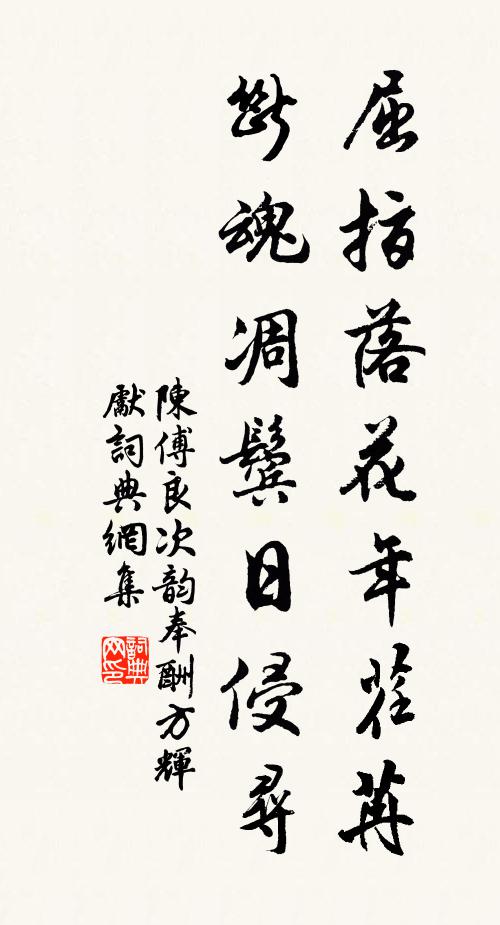 屈指落花年荏苒
斷魂凋鬢日侵尋
陳傅良次韵奉酬方輝
獻詞典網集
詞典网印